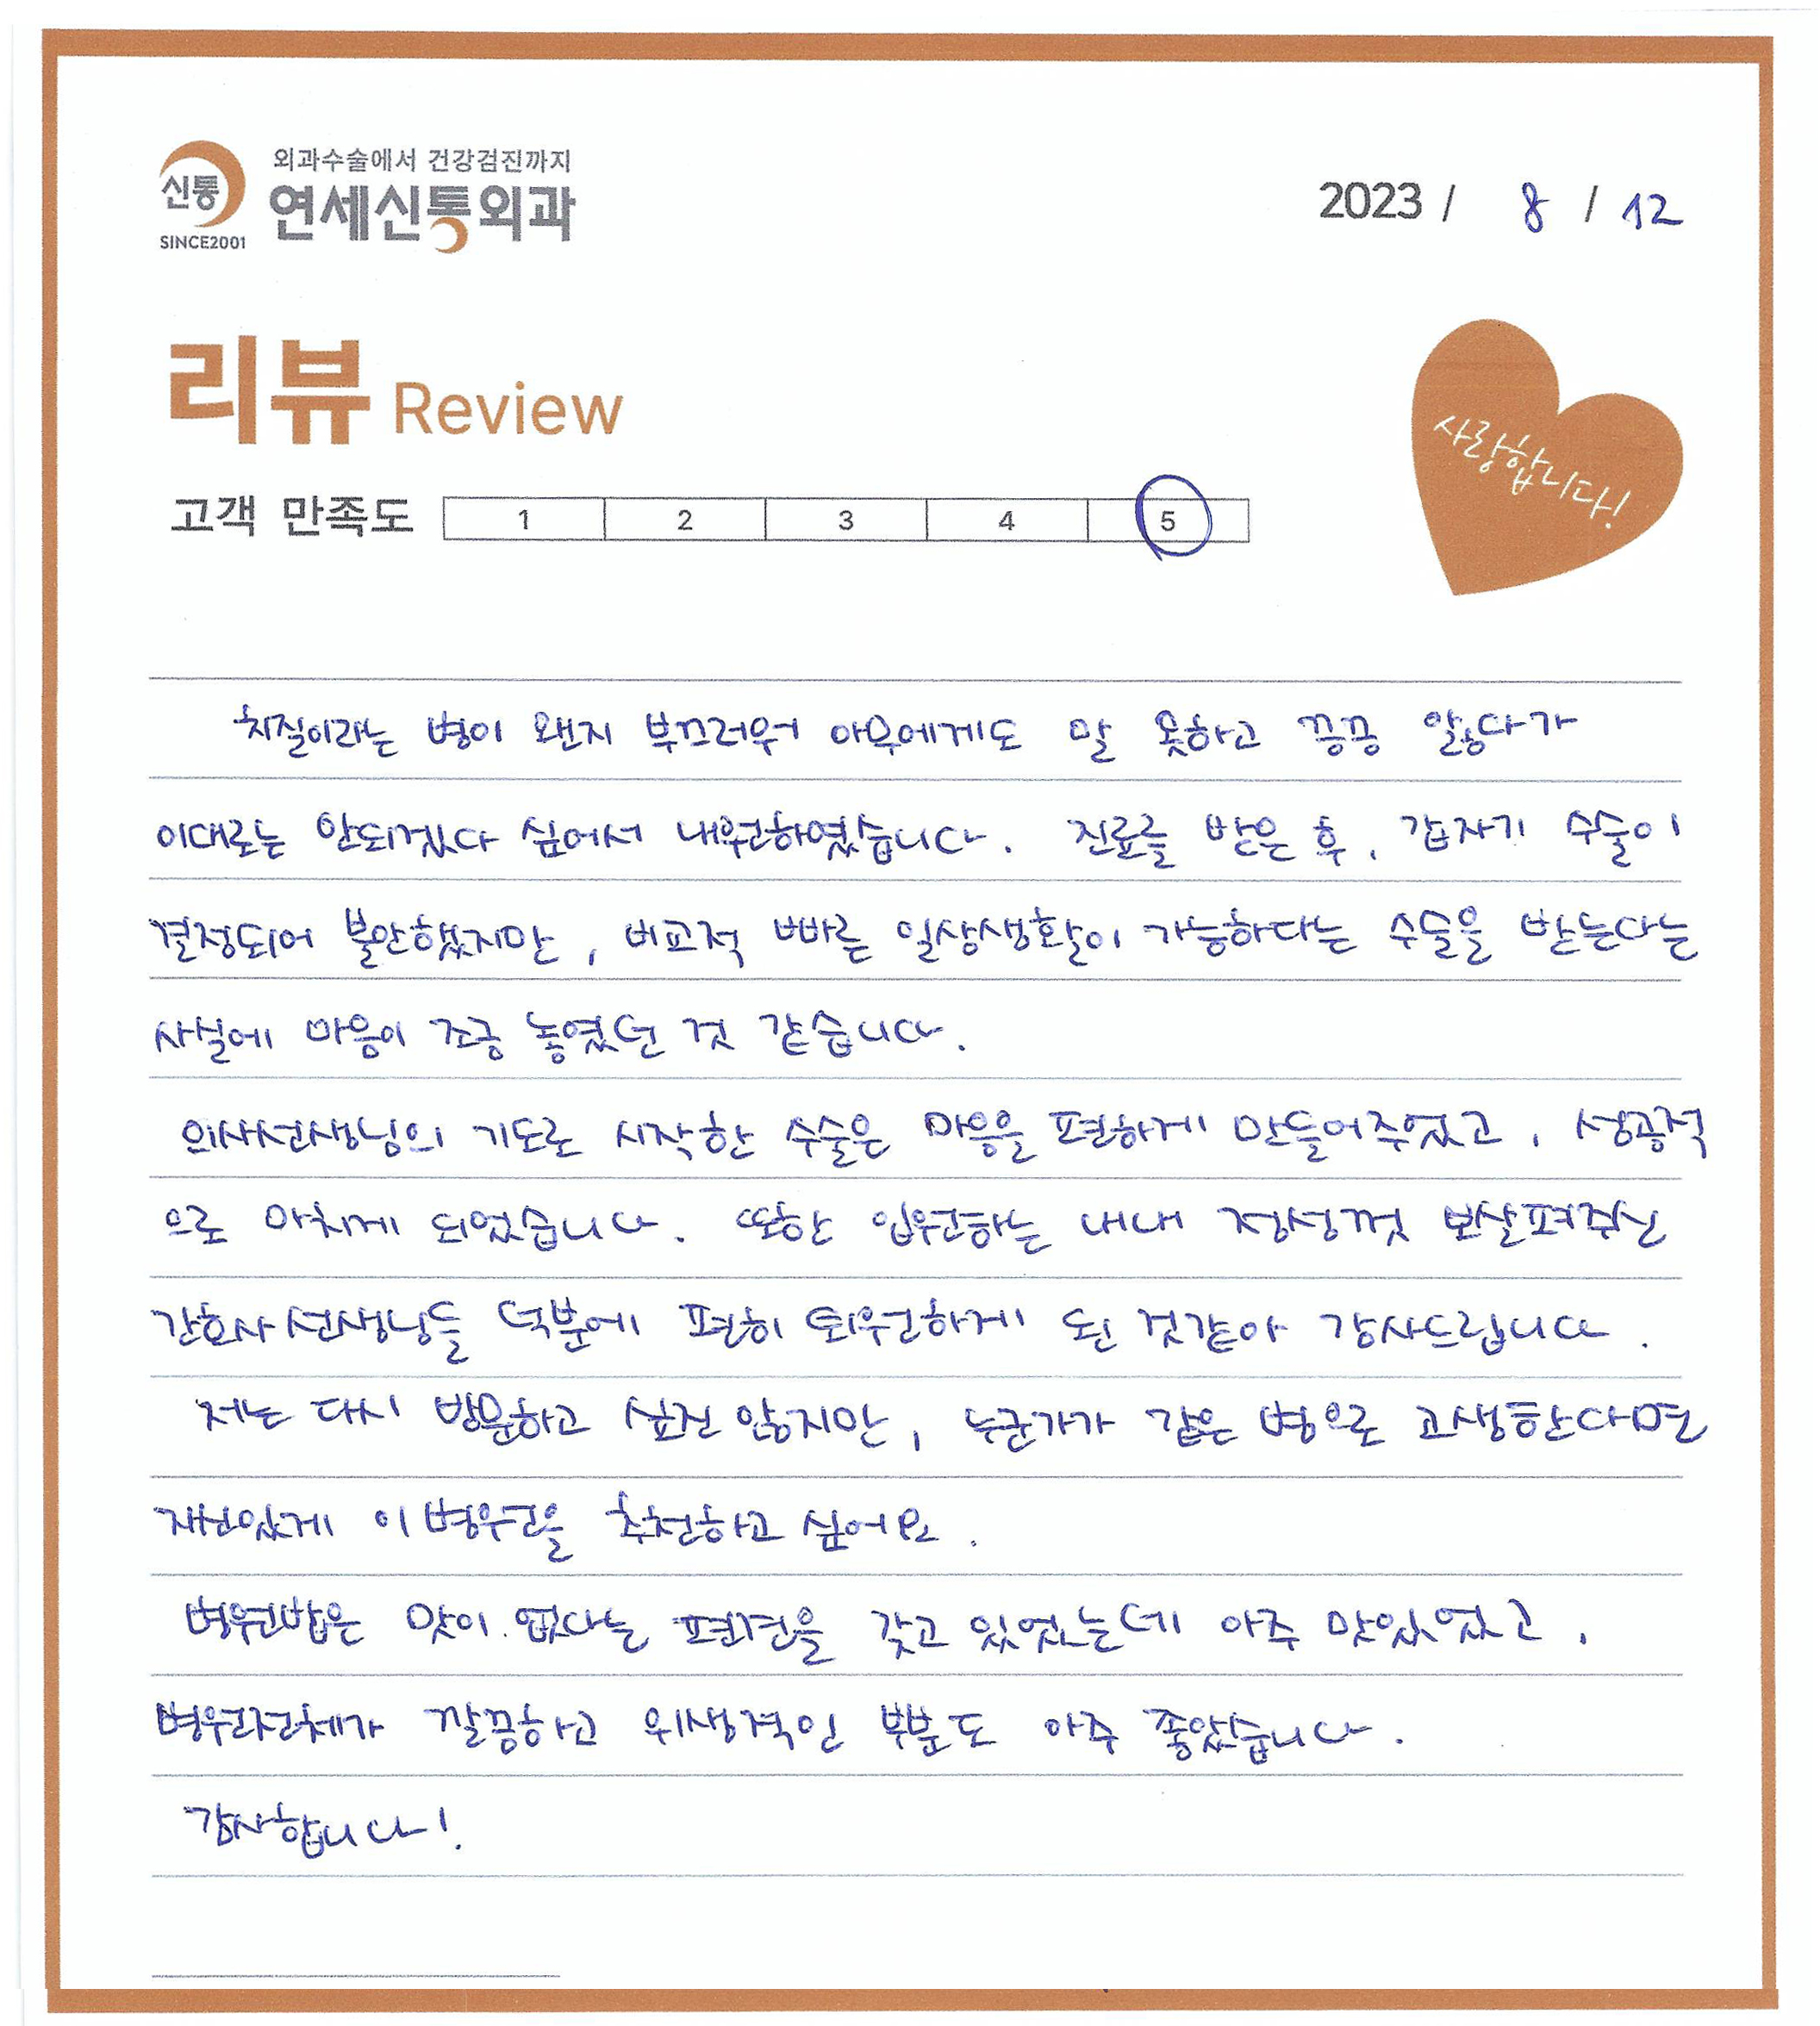 신통
SINCE2001
외과수술에서 건강검진까지
연세신통외과
2023 / 8 / 12
리뷰 Review
사랑합니다!
고객 만족도 1 2 3 4 5
치질이라는 병이 왠지 부끄러워 아무에게도 말 못하고 끙끙 앓다가
이대로는 안되겠다 싶어서 내원하였습니다. 진료를 받은 후, 갑자기 수술이
결정되어 불안했지만, 비교적 빠른 일상생활이 가능하다는 수술을 받는다는
사실에 마음이 조금 놓였던 것 같습니다.
의사선생님의 기도로 시작한 수술은 마음을 편하게 만들어주었고, 성공적
으로 마치게 되었습니다. 또한 입원하는 내내 정성껏 보살펴주신
간호사선생님들 덕분에 편히 퇴원하게 된 것같아 감사드립니다.
저는 다시 방문하고 싶진 않지만, 누군가가 같은 병으로 고생한다면
자신있게 이 병원을 추천하고 싶어요.
병원밥은 맛이 없다는 편견을 갖고 있었는데 아주 맛있었고,
병원전체가 깔끔하고 위생적인 부분도 아주 좋았습니다.
감사합니다!